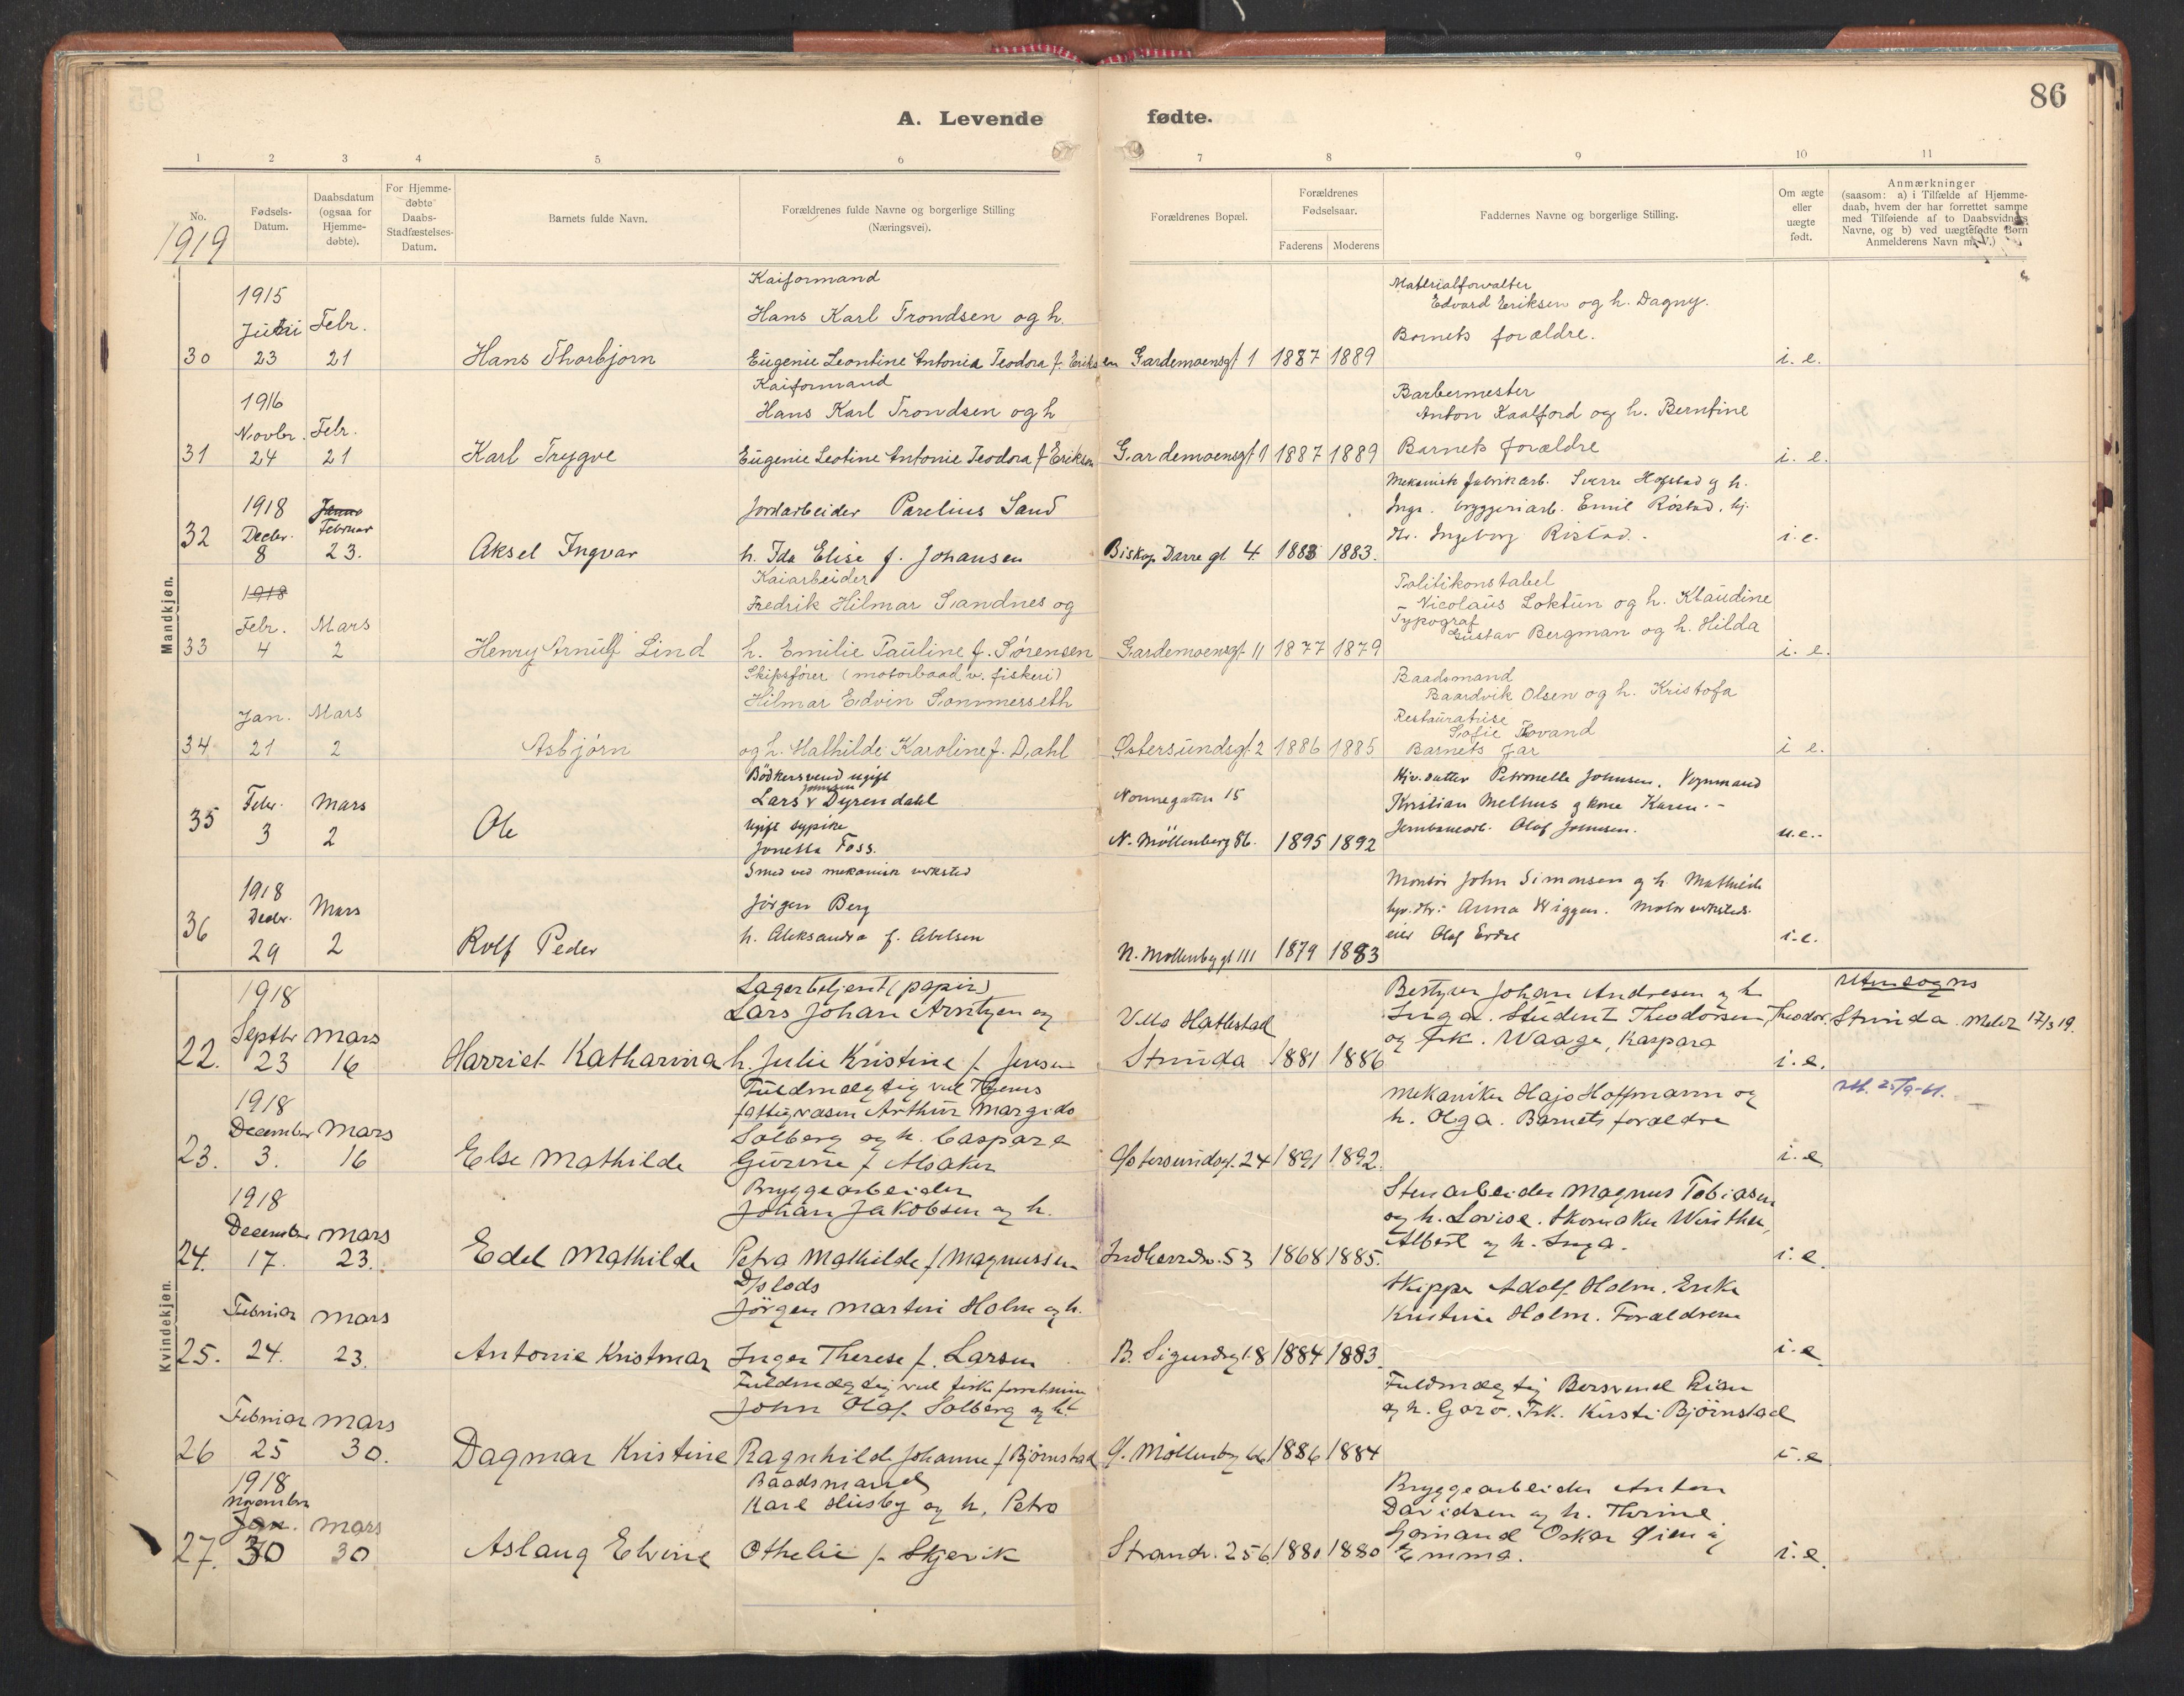 86
A. Levende fødte.
1 2 3 4 5 6 7 8 9 10 11
No.
Fødsels-Datum.
Daabsdatum (ogsaa for Hjemme-døbte).
For Hjemme-døbte Daabs-Stadfæstelses-Datum.
Barnets fulde Navn.
Forældrenes fulde Navne og borgerlige Stilling (Næringsvei).
Forældrenes Bopæl.
Forældrenes Fødselsaar.
Faderens Moderens
Faddernes Navne og borgerlige Stilling.
Om ægte eller uægte født.
Anmærkninger
(saasom: a) i Tilfælde af Hjemme-
daab, hvem der har forrettet samme
med Tilføiende af to Daabsvidners
Navne, og b) ved uægtefødte Børn
Anmelderens Navn m. V.)
1919
Mandkjøn.
1915 Kaiformand Materialforvalter
Febr. Hans Karl Trondsen og h. Edvard Eriksen og h. Dagny.
Barnets forældre.
30 23 21 Hans Thorbjørn Eugenie Leontine Antonia Teodora f. Eriksen Gardemoensgt 1 1887 1889 i. e.
1916 Kaiformand Barbermester
Novbr. Febr. Hans Karl Trondsen og h Anton Kaalford og h. Berntine
31 24 21 Karl Trygve Eugenie Leotine Antonie Teodora f Eriksen Gardemoensgt 1 1887 1889 Barnets forældre i. e.
1918 Janua Februar Jordarbeider Parelius Sand Mekanisk fabrikarb. Sverre Hofstad g h.
Decbr. Inga. bryggeriarb. Emil Röstad. hj.
32 8 23. Aksel Ingvar h. Ida Elise f. Johansen Biskop Darre gt 4. 1883 1883. dtr. Ingeborg Ristad. i. e.
1918 Kaiarbeider Politikonstabel
Febr. Mars Fredrik Hilmar Sandnes og Nicolaus Loktun og h. Klaudine
Typograf
33 4 2 Henry Arnulf Lind h. Emilie Pauline f. Sørensen Gardemoensgt 11 1877 1879 Gustav Bergman og h. Hilda i. e.
Skipsfører (motorbaad v. fiskeri) Baadsmand
Jan. Mars Hilmar Edvin Sommerseth Baardvik Olsen og h. Kristofa
Restauratrise
34 21 2 Asbjørn og h. Mathilde Karoline f. Dahl Østersundsgt. 2 1886 1885 Barnets far i e.
Bödkersvend ugift Petronelle Johnsen. Vognmand
Febr. Mars Lars Johnsen Dyrendahl Nonnegaten 15 Kristian Melhus g kone Karen. -
35 3 2 Ole Ugift sypike Jonetta Foss. N. Möllenberg 86. 1895 1892 Jernbanearb. Olaf Johnsen. u.e.
1918 Smed ved mekanisk verksted Montör John Simonsen g h. Mathilde
Decbr. Mars Jörgen Berg Anna Wiggen. Motorverksteds-
36 29 2 Rolf Peder h. Aleksandra f. Abelsen N. Möllenbg gt 111 1879 1883 eier Olaf i.e.
Kvindekjøn.
1918 Lagerbetjent (papir) Bestyrer Johan Andresen og h Utensogns
Septbr Mars Lars Johan Arntzen og Villa Hallestad Inga. Student Theodorsen, Theodor. Strinda. Meldt 17/3 19.
22. 23 16 Harriet Katharina h. Julie Kristine f. Jensen Strinda 1881 1886 og frk. Waage, Kaspara i. e.
1918 Fuldmægtig ved Arthur Margido Mekaniker Hajo Hoffmann og
December Mars Solberg og h. Caspara h. Olga. Barnets forældre
23. 3. 16 Else Mathilde f Alsaker Østersundsgt. 24 1891 1892. i. e
1918 Bryggearbeider Stenarbeider Magnus Tobiasen
December Mars Johan Jakobsen og h. og h. Lovise. Skomaker Winther,
24. 17. 23. Edel Mathilde Petra Mathilde f Magnussen Indherredsv. 53 1868 1885. Albert og h. Inga. i. e
D/s lods Skipper Adolf Holm. Enke
Februar Mars Jörgen Martin Holm og h. Kristine Holm. Forældrene
25. 24. 23. Antonie Kristmar Inger Therese f. Larsen B. Sigurdsgt. 8 1884 1883 i. e
Fuldmægtig ved fiskeforretning Fuldmægtig Bersvend Rian
Februar Mars John Olaf Solberg og h. og h. Goro. Frk. Kirsti Björnstad
26 25 30. Dagmar Kristine Ragnhild Johanne f Björnstad Ø. Möllenbg 66 1886 1884 i. e
1918 Baadsmand Bryggearbeider Anton
November Jan. Mars Karl Husby og h. Petra Davidsen og h. Thrine.
27. 30 30 Aslaug Elvine Othelie f. Skjervik Strandv. 256 1880 1880 Oskar Öien og Emma. i. e.